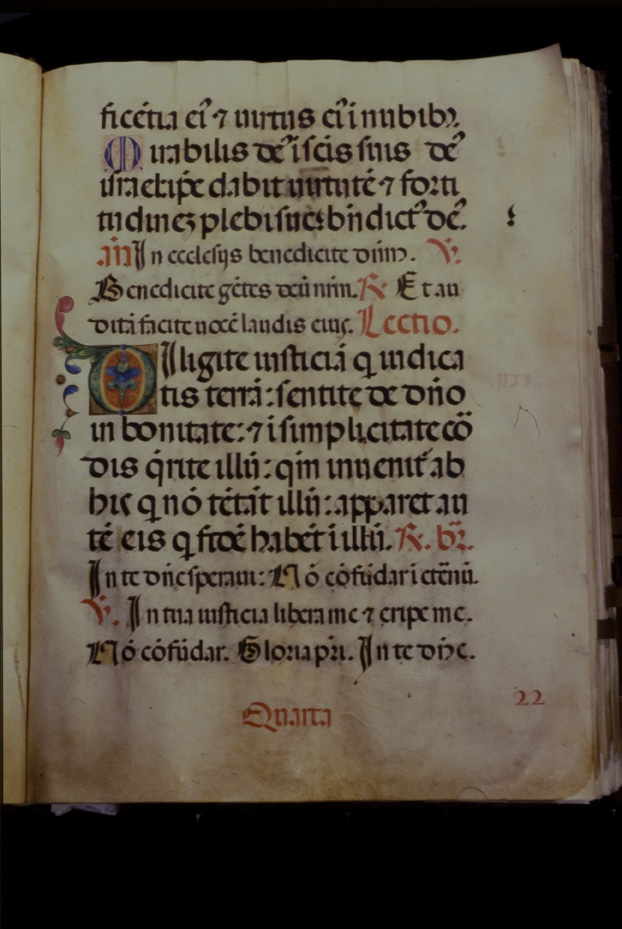 ficẽtia ei᷒ ⁊ uirtus ei᷒ i nubibꝫ.
Mirabilis de᷒ i scĩs suis de᷒
israel ip̃e dabit uirtutẽ ⁊ forti
tudinez plebi sue bñdict᷒ de᷒.
Añ In ecclesijs benedicite dño. ℣.
Benedicite gẽtes deũ nr̃m. ℟. Et au
ditã facite uocẽ laudis eius. Lectio.
Diligite iusticiã q iudica
tis terrã: sentite de dño
in bonitate: ⁊ i simplicitate cõ
dis q̃rite illũ: qm̃ inuenit᷒ ab
his q nõ tẽtãt illũ: apparet au
tẽ eis q fidẽ habẽt i illũ. ℟. br̃.
In te dñe speraui: Nõ cõfũdar i etẽnũ.
℣. In tua iusticia libera me ⁊ eripe me.
Nõ cõfũdar. Gloria pr̃i. In te dñe.
22
Quarta